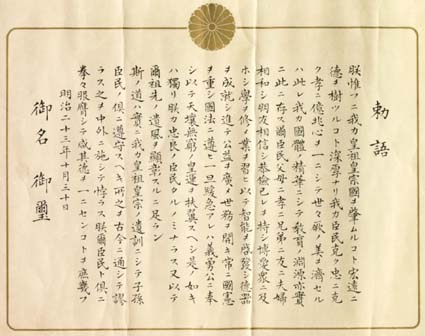 勅語
朕惟フニ我カ皇祖皇宗國ヲ肇ムルコト宏遠ニ
德ヲ樹ツルコト深厚ナリ我カ臣民克ク忠ニ克
ク孝ニ億兆心ヲ一ニシテ世々厥ノ美ヲ濟セル
ハ此レ我カ國體ノ精華ニシテ敎育ノ淵源亦實
ニ此ニ存ス爾臣民父母ニ孝ニ兄弟ニ友ニ夫婦
相和シ朋友相信シ恭儉己レヲ持シ博愛衆ニ及
ホシ學ヲ修メ業ヲ習ヒ以テ智能ヲ啓發シ德器
ヲ成就シ進テ公益ヲ廣メ世務ヲ開キ常ニ國憲
ヲ重シ國法ニ遵ヒ一旦緩急アレハ義勇公ニ奉
シ以テ天壤無窮ノ皇運ヲ扶翼スヘシ是ノ如キ
ハ獨リ朕カ忠良ノ臣民タルノミナラス又以テ
爾祖先ノ遺風ヲ顯彰スルニ足ラン
斯ノ道ハ實ニ我カ皇祖皇宗ノ遺訓ニシテ子孫
臣民ノ俱ニ遵守スヘキ所之ヲ古今ニ通シテ謬
ラス之ヲ中外ニ施シテ悖ラス朕爾臣民ト俱ニ
拳々服膺シテ咸其德ヲ一ニセンコトヲ庶幾フ
明治二十三年十月三十日
御名御璽